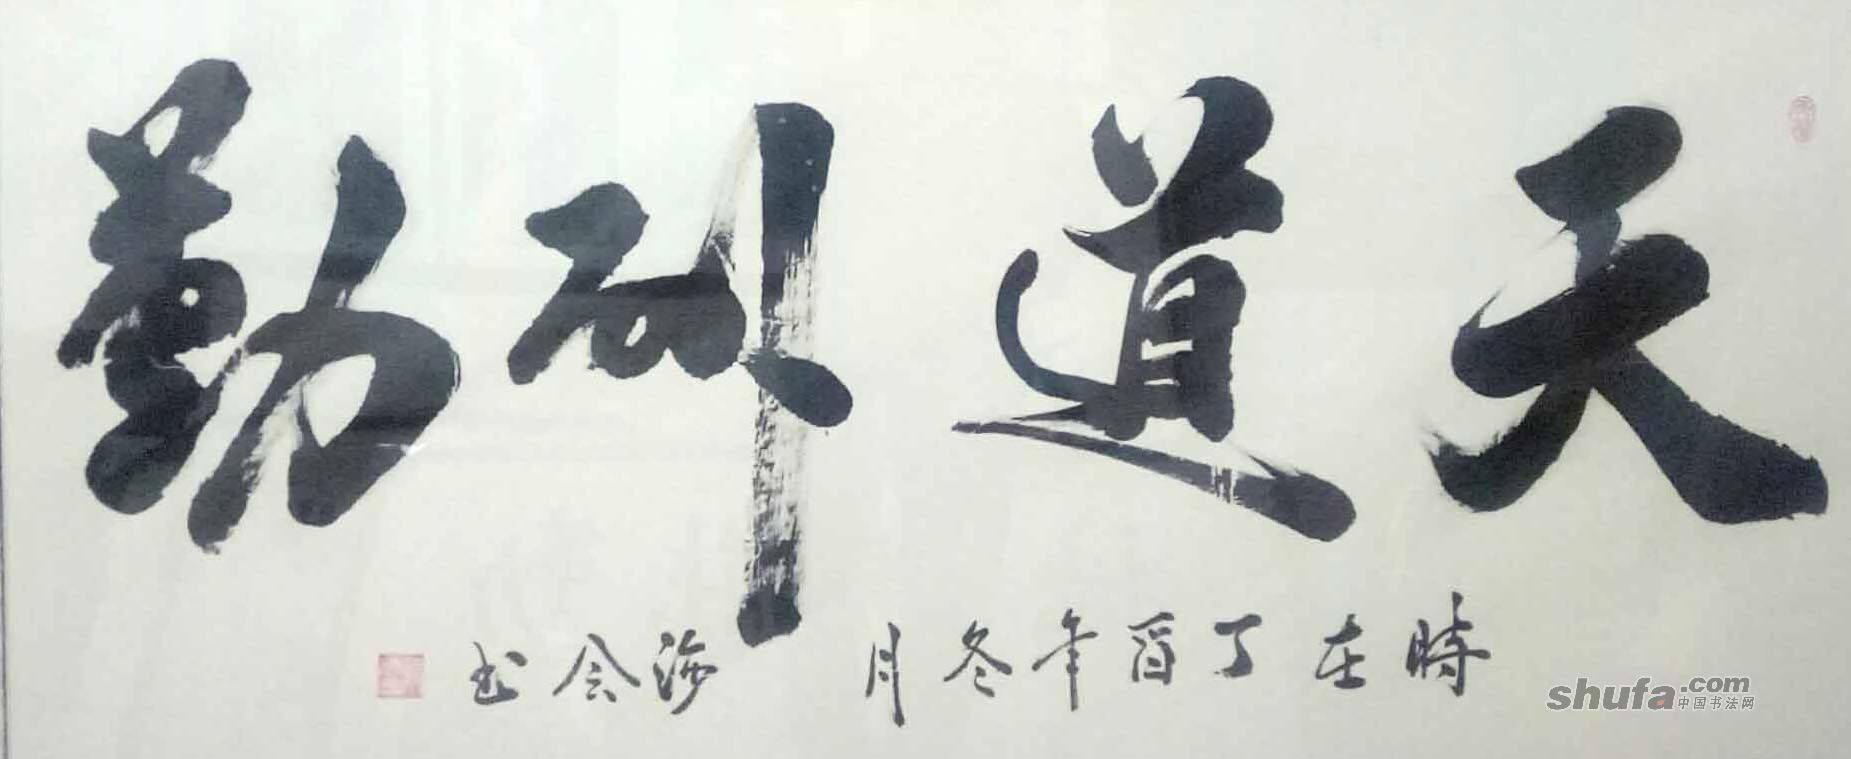 天道酬勤
時在丁酉年冬月 海会书
shufa.com
中国书法网